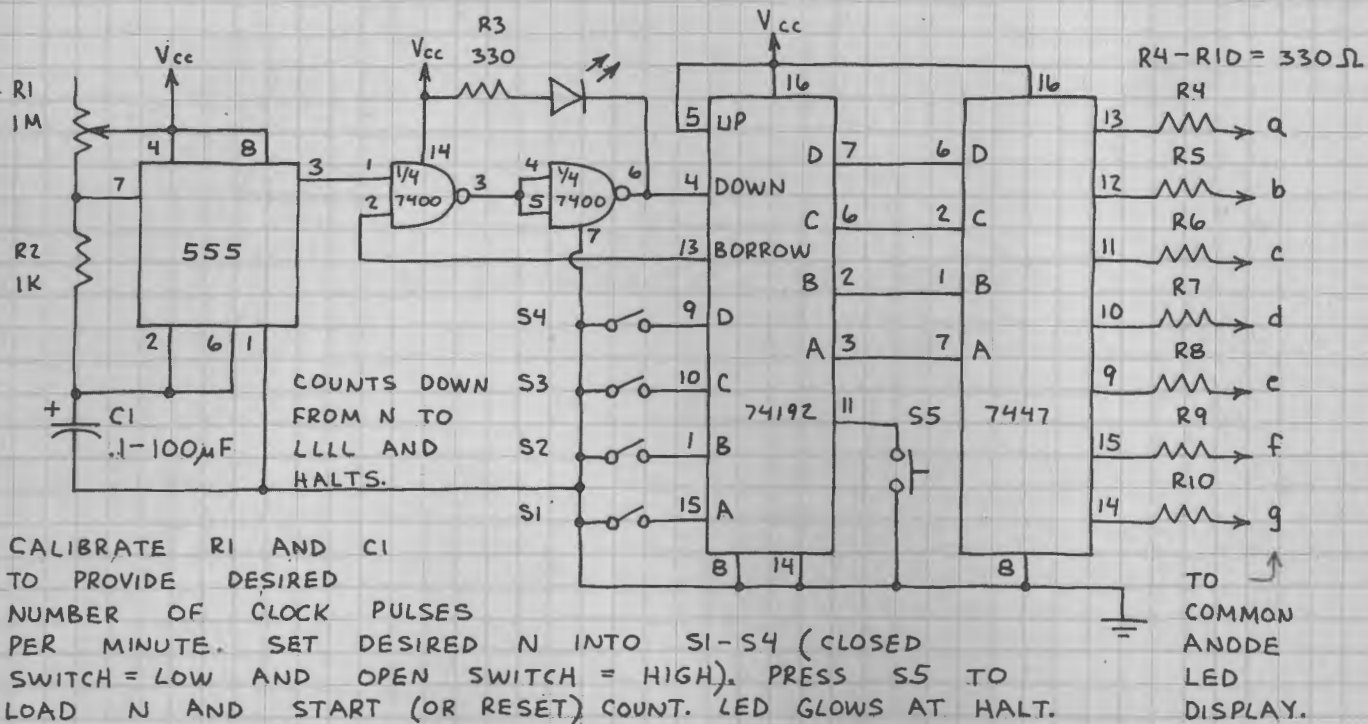 R1
1M
Vcc
4
8
7
3
R2
1K
555
2
6
1
+
C1
.1-100µF
Vcc
R3
330
14
1
2
1/4
7400
3
4
5
1/4
7400
6
7
COUNTS DOWN
FROM N TO
LLLL AND
HALTS.
S4
S3
S2
S1
Vcc
16
5 UP
4 DOWN
13 BORROW
9 D
10 C
1 B
15 A
D 7
C 6
B 2
A 3
74192
11
S5
8
14
16
6 D
2 C
1 B
7 A
7447
8
R4-R10 = 330Ω
13 R4 a
12 R5 b
11 R6 c
10 R7 d
9 R8 e
15 R9 f
14 R10 g
TO
COMMON
ANODE
LED
DISPLAY.
CALIBRATE R1 AND C1
TO PROVIDE DESIRED
NUMBER OF CLOCK PULSES
PER MINUTE. SET DESIRED N INTO S1-S4 (CLOSED
SWITCH = LOW AND OPEN SWITCH = HIGH). PRESS S5 TO
LOAD N AND START (OR RESET) COUNT. LED GLOWS AT HALT.